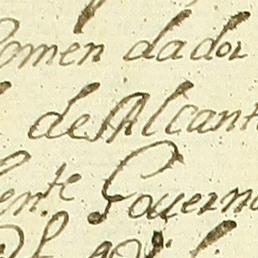 Comendador
de Alcant
ente Gouerna